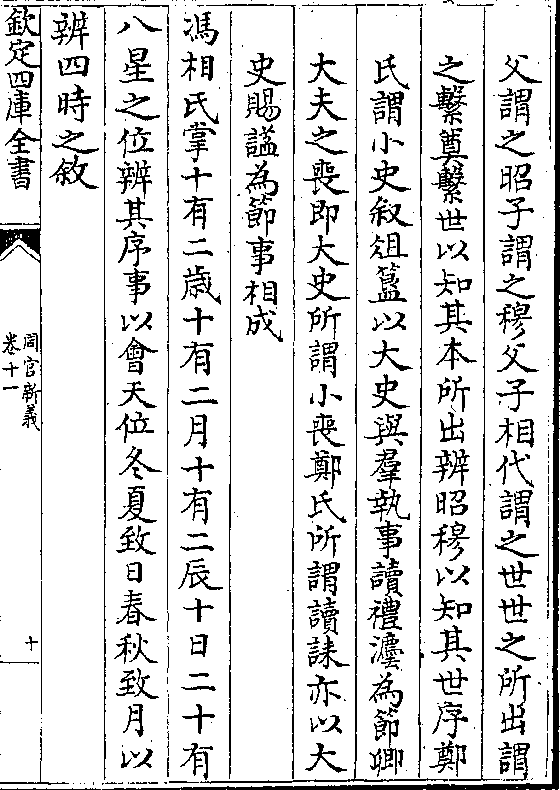 父謂之昭子謂之穆父子相代謂之世世之所出謂
之繫奠繫世以知其本所出辨昭穆以知其世序鄭
氏謂小史叙俎簋以大史與羣執事讀禮灋為節卿
大夫之喪即大史所謂小喪鄭氏所謂讀誄亦以大
史賜諡為節事相成
馮相氏掌十有二歳十有二月十有二辰十日二十有
八星之位辨其序事以會天位冬夏致日春秋致月以
辨四時之敘
欽定四庫全書
周官新義
卷十一
十